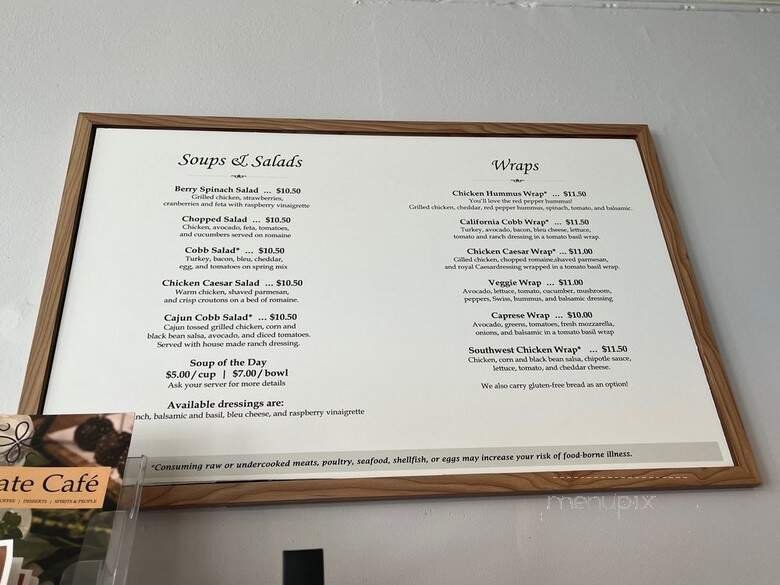 Soups & Salads
Berry Spinach Salad ... $10.50
Grilled chicken, strawberries,
cranberries and feta with raspberry vinaigrette
Chopped Salad ... $10.50
Chicken, avocado, feta, tomatoes,
and cucumbers served on romaine
Cobb Salad* ... $10.50
Turkey, bacon, bleu, cheddar,
egg, and tomatoes on spring mix
Chicken Caesar Salad ... $10.50
Warm chicken, shaved parmesan,
and crisp croutons on a bed of romaine.
Cajun Cobb Salad* ... $10.50
Cajun tossed grilled chicken, corn and
black bean salsa, avocado, and diced tomatoes.
Served with house made ranch dressing.
Soup of the Day
$5.00/cup | $7.00/bowl
Ask your server for more details
Available dressings are:
nch, balsamic and basil, bleu cheese, and raspberry vinaigrette
Wraps
Chicken Hummus Wrap* ... $11.50
You'll love the red pepper hummus!
Grilled chicken, cheddar, red pepper hummus, spinach, tomato, and balsamic.
California Cobb Wrap* ... $11.50
Turkey, avocado, bacon, bleu cheese, lettuce,
tomato and ranch dressing in a tomato basil wrap.
Chicken Caesar Wrap* ... $11.00
Gilled chicken, chopped romaine,shaved parmesan,
and royal Caesardressing wrapped in a tomato basil wrap.
Veggie Wrap ... $11.00
Avocado, lettuce, tomato, cucumber, mushroom,
peppers, Swiss, hummus, and balsamic dressing
Caprese Wrap ... $10.00
Avocado, greens, tomatoes, fresh mozzarella,
onions, and balsamic in a tomato basil wrap
Southwest Chicken Wrap* ... $11.50
Chicken, corn and black bean salsa, chipotle sauce,
lettuce, tomato, and cheddar cheese.
We also carry gluten-free bread as an option!
*Consuming raw or undercooked meats, poultry, seafood, shellfish, or eggs may increase your risk of food-borne illness.
ate Café
OFFEE | DESSERTS | SPIRITS & PEOPLE
menupix